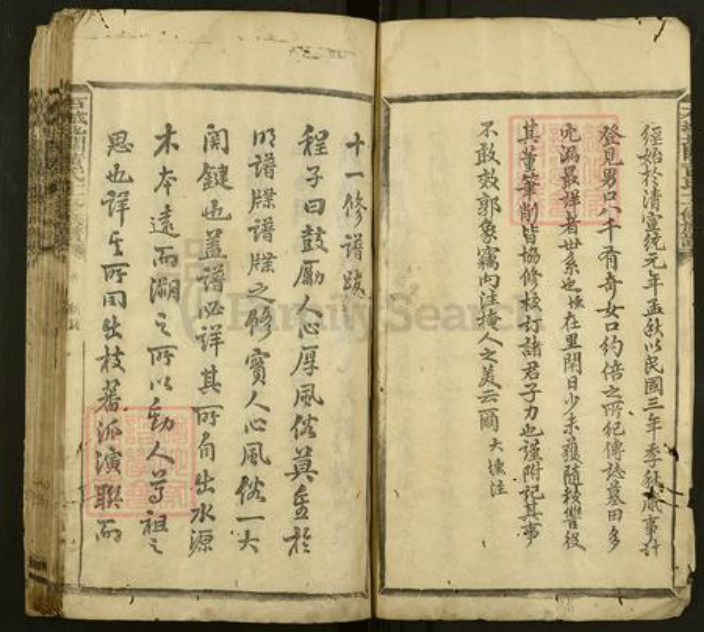 經始於清宣統元年孟秋以民國三年季秋蕆事計
登見男口八千有奇女口約倍之所紀傳誌墓田多
漏最詳者世系也 在里閈日少未獲隨校讐役
其董筆削皆協修校訂諸君子力也謹附記其事
不敢效郭象竊向注掩人之美云爾 大 注
十一修譜跋
程子曰鼓勵人心厚風俗莫善於
明譜牒譜牒之修實人心風俗一大
關鍵也蓋譜必詳其所自出水源
木本遠而溯之所以動人尊祖之
思也詳其所同出枝蕃派演聯而
FamilySearch